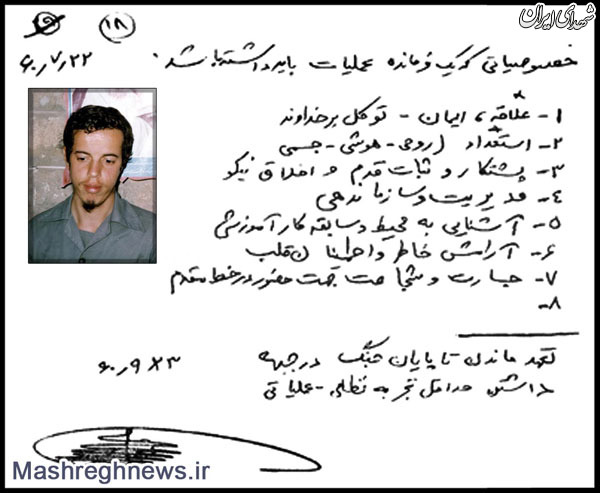 شهدای ایران
۱۸
۶۰٫۷٫۲۲
خصوصیاتی که یک فرمانده عملیات باید داشته باشد.
۱- علاقه، ایمان - توکل بر خداوند
۲- استعداد (روحی - هوشی - جسمی
۳- پشتکار و ثبات قدم و اخلاق نیکو
۴- مدیریت و سازماندهی
۵- آشنایی به محیط و سابقه کار آموزشی
۶- آرامش خاطر و اطمینان قلب
۷- جسارت و شجاعت جهت حضور در خط مقدم
۸-
تعهد ماندن تا پایان جنگ در جبهه
۶۰٫۹٫۲۳
داشتن حداقل تجربه نظامی - عملیاتی
Mashreghnews.ir